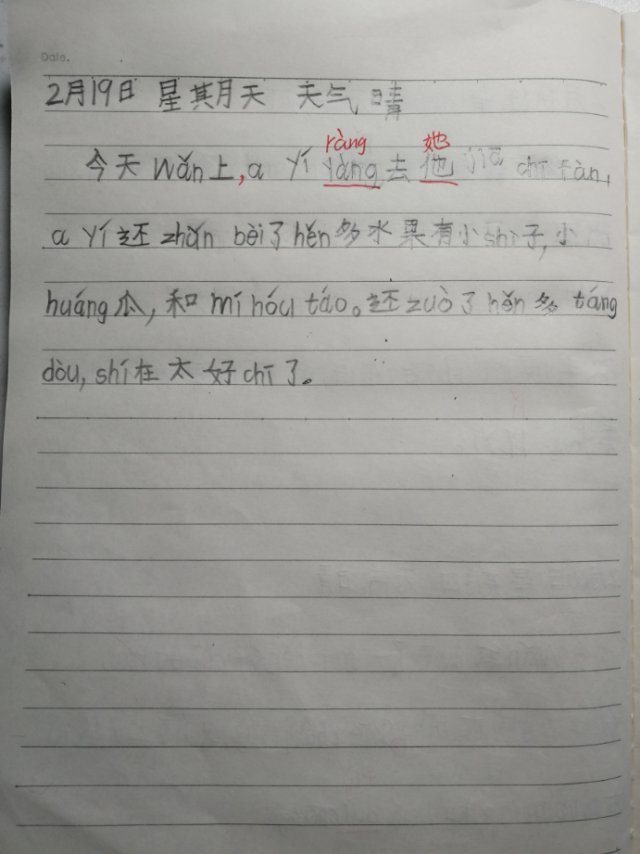 Date.
2月19日 星期天 天气 晴
ràng 她
今天wǎn上,a yí yàng去他jiā chī fàn,
a yí还zhǔn bèi了hěn多水果有小shì子,小
huáng瓜,和mí hóu táo。还zuò了hěn多táng
dòu,shí在太好chī了。